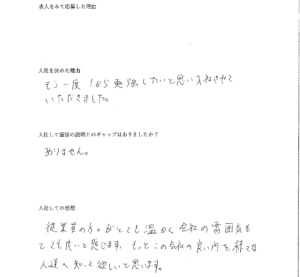 求人をみて応募した理由
入社を決めた理由
もう一度 1から勉強したいと思い
いただきました。
入社して面接の説明とのギャップはありましたか?
ありません。
入社しての感想
従業員の方々がとても温かく会社の雰囲気も
とても良いと感じます。もっとこの会社の良い所を様々な
人達へ知って欲しいと思います。